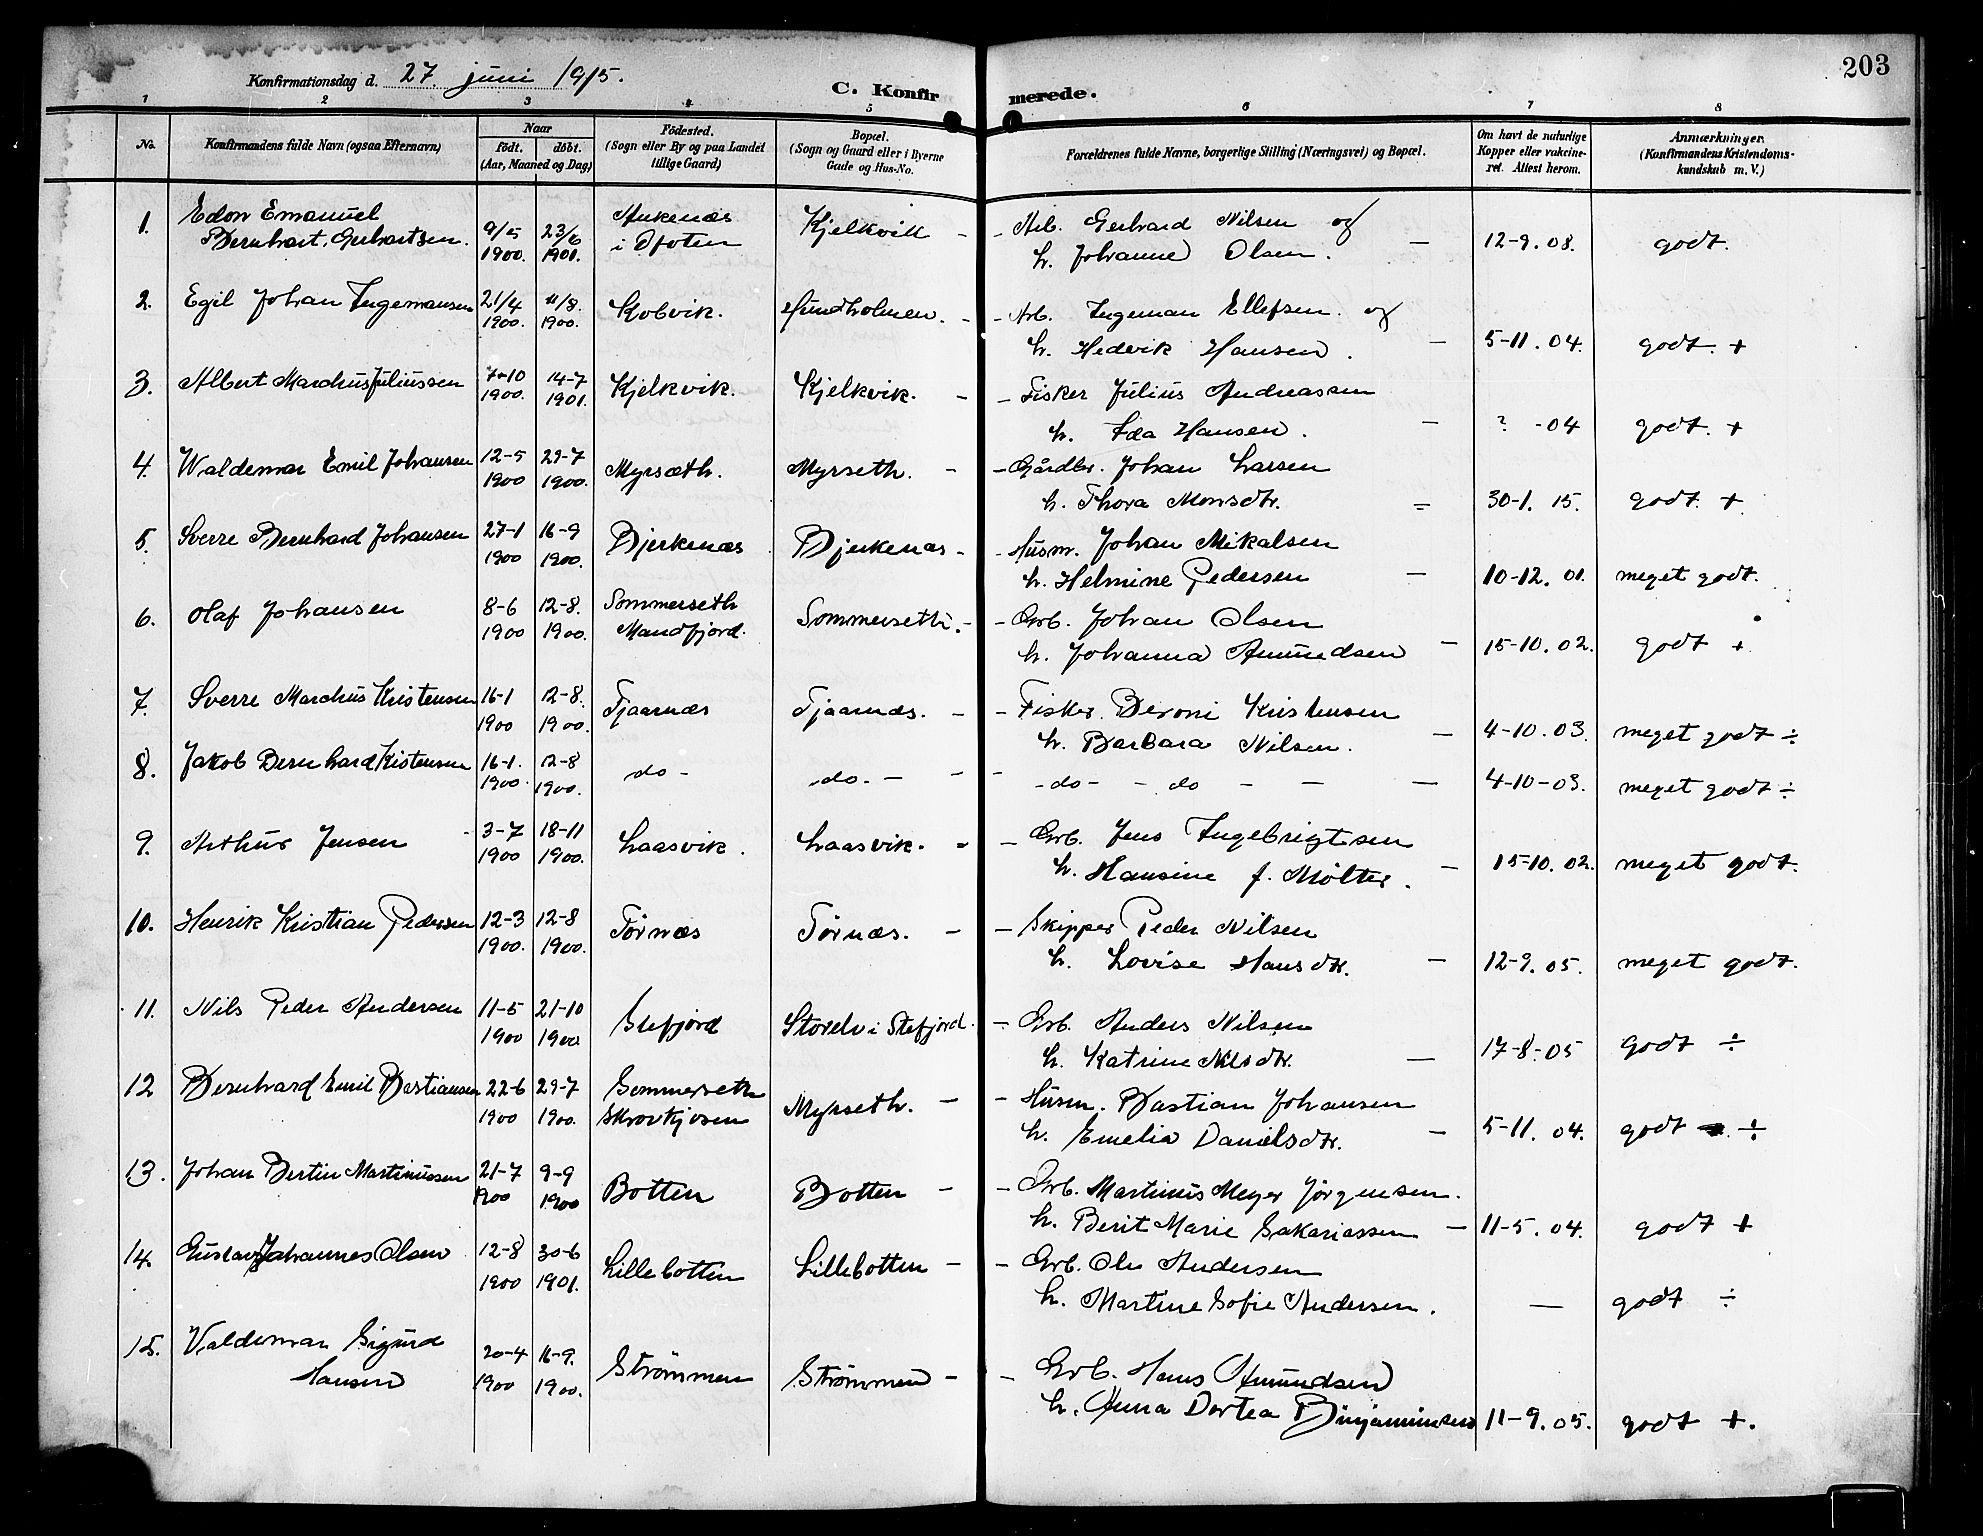 203
Konfirmationsdag d. 27. juni 1915.
C. Konfirmerede.
1 2 3 4 5 6 7 8
No.
Konfirmandens fulde Navn (ogsaa Efternavn)
Naar
födt. döbt.
(Aar, Maaned og Dag)
Födested.
(Sogn eller By og paa Landet
tillige Gaard)
Bopæl.
(Sogn og Gaard eller i Byerne
Gade og Hus-No.
Forældrenes fulde Navne, borgerlige Stilling (Næringsvei) og Bopæl.
Om havt de naturlige
Kopper eller vakcine-
ret. Attest herom.
Anmærkninger.
(Konfirmandens Kristendoms-
kundskab m. V.)
1. Edon Emanuel
Bernhart. Gerhartsen. 9/5 1900. 23/6 1901. Ankenæs
i Ofoten Kjelkvik - - Arb. Gerhard Nilsen og
h. Johanne Olsen. - 12-9.08. godt.
2. Egil Johan Ingemansen 21/4 1900. 11/8. 1900. Kobvik. Hundholmen. - - Arb. Ingeman Ellefsen. og
h. Hedvik Hansen. - 5-11.04. godt. +
3. Albert Marchus Juliussen 7-10 1900. 14-7 1901. Kjelkvik. Kjelkvik. - - Fisker Julius Andreassen
h. Ida Hansen. - ? -04 godt. +
4. Waldemar Emil Johansen 12-5 1900 29-7 1900. Myrsæth. Myrseth. - - Gårdbr. Johan Larsen
h. Thora Monsdtr. = 30-1. 15. godt. +
5. Sverre Bernhard Johansen 27-1 1900 16-9 1900. Bjerkenæs Bjerkenæs - - Husm. Johan Mikalsen
h. Helmine Pedersen - 10-12. 01. meget godt.
6. Olaf Johansen 8-6 1900 12-8. 1900. Sommerseth
Mandfjord. Sommerseth. - - Grb. Johan Olsen
h. Johanna Amundsen - 15-10.02. godt +
7. Sverre Marchus Kristensen 16-1 1900 12-8. 1900. Tjaarnæs Tjaarnæs. - - Fisker. Beroni Kristensen
h. Barbara Nilsen. - 4-10.03. meget godt ÷
8. Jakob Bernhard Kistensen 16-1. 1900. 12-8 1900. do - do. - - - -do- - do - - - 4-10-03. meget godt ÷
9. Arthur Jensen 3-7 1900 18-11 1900. Laasvik. Laasvik. - - Grb. Jens Ingebrigtsen
h. Hansine f. Mølter. - 15-10.02. meget godt.
10. Henrik Kristian Pedersen 12-3 1900. 12-8 1900. Tørnæs Tørnæs. - - Skipper Peder Nilsen
h. Lovise Hansdtr. - 12-9.05. meget godt.
11. Nils Peder Andersen 11-5 1900 21-10 1900 Stefjord Storelv i Stefjord. - Grb. Anders Nilsen
h. Katrine Nilsdtr. - 17-8-05 godt ÷
12 Bernhard Emil Bastiansen 22-6 1900 29-7 1900. Sommerseth
Skrovkjosen Myrseth. - - Husm. Bastian Johansen
h. Emelia Danielsdtr. - 5-11.04. godt ÷
13. Johan Bertin Martinussen 21-7 1900 9-9 1900 Botten Botten - - Grb. Martinus Meyer Jörgensen.
h. Berit Marie Sakariassen - 11-5.04. godt +
14. Gustav Johannes Olsen 12-8 1900 30-6 1901. Lillebotten Lillebotten - - Grb. Ole Andersen
h. Martine Sofie Andersen. - godt ÷
15. Valdemar Sigurd
Hansen 20-4 1900 16-9. 1900. Strømmen Strømmen - - Grb. Hans Amundsen
h. Anna Dortea Binjaminsen 11-9.05. godt +.